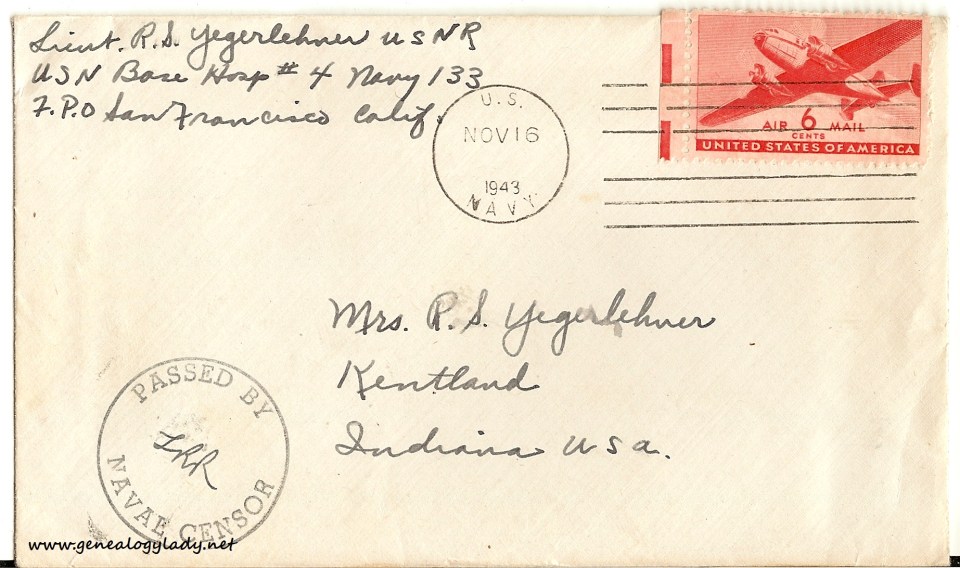 Lieut. R. S. Yegerlehner USNR
USN Base Hosp # 4 Navy 133
F.P.O San Francisco Calif.
U.S.
NOV 16
1943
NAVY
AIR 6 MAIL
CENTS
UNITED STATES OF AMERICA
Mrs. R. S. Yegerlehner
Kentland
Indiana USA.
PASSED BY
NAVAL CENSOR
www.genealogylady.net